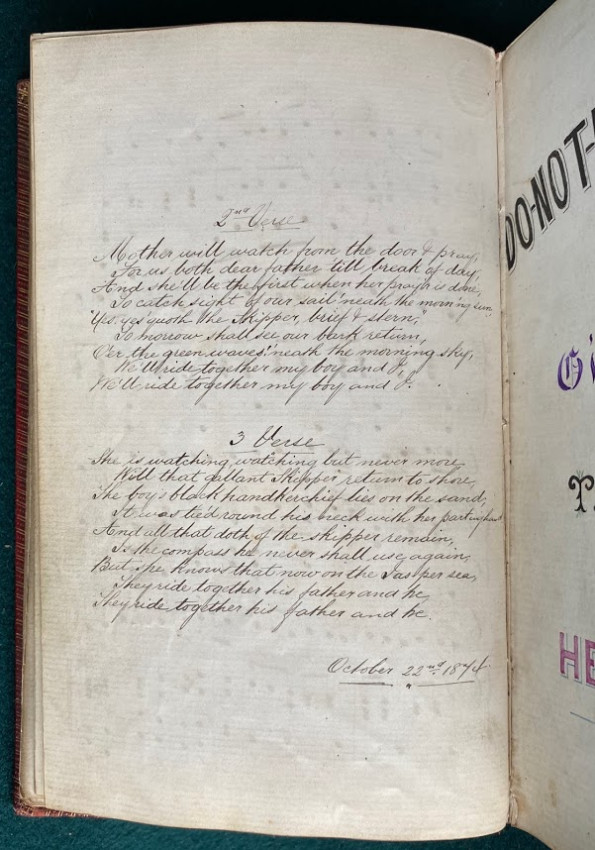 2nd Verse
Mother will watch from the door & pray,
For us both dear father till break of day,
And she'll be the first when her prayer is done,
To catch sight of our sail 'neath the morning sun,
"Yes, yes" quoth the Skipper, brief & stern,"
To morrow shall see our bark return,
O'er the green waves 'neath the morning sky,
We'll ride together my boy and I,
We'll ride together my boy and I.
3 Verse
She is watching, watching but never more,
Will that gallant Skipper return to shore,
The boy's black handkerchief lies on the sand,
It was tied round his neck with her parting hand
And all that doth of the skipper remain,
Is the compass he never shall use again,
But she knows that now on the Jasper sea,
They ride together his father and he,
They ride together his father and he.
October 22nd 1874.
DO-NOT-
HE